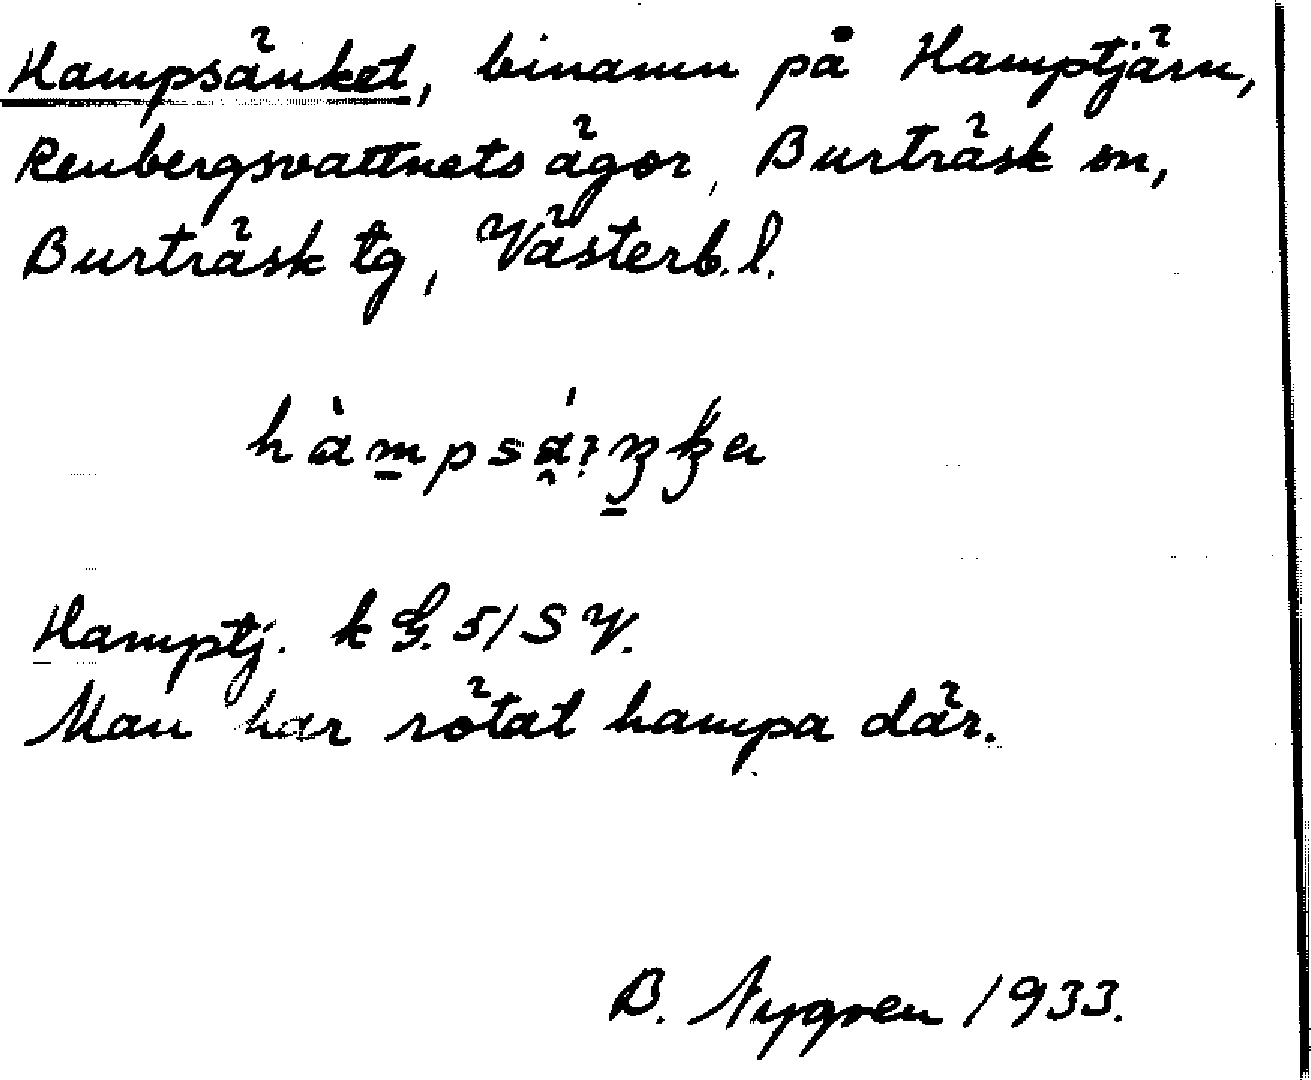 Hampsänket, binamn på Hamptjärn,
Renbergsvattnets ägor, Burträsk sn,
Burträsk tg, Västerb. l.
Hamptj. k G. 51 S V.
Man har rötat hampa där.
B. Nygren 1933.